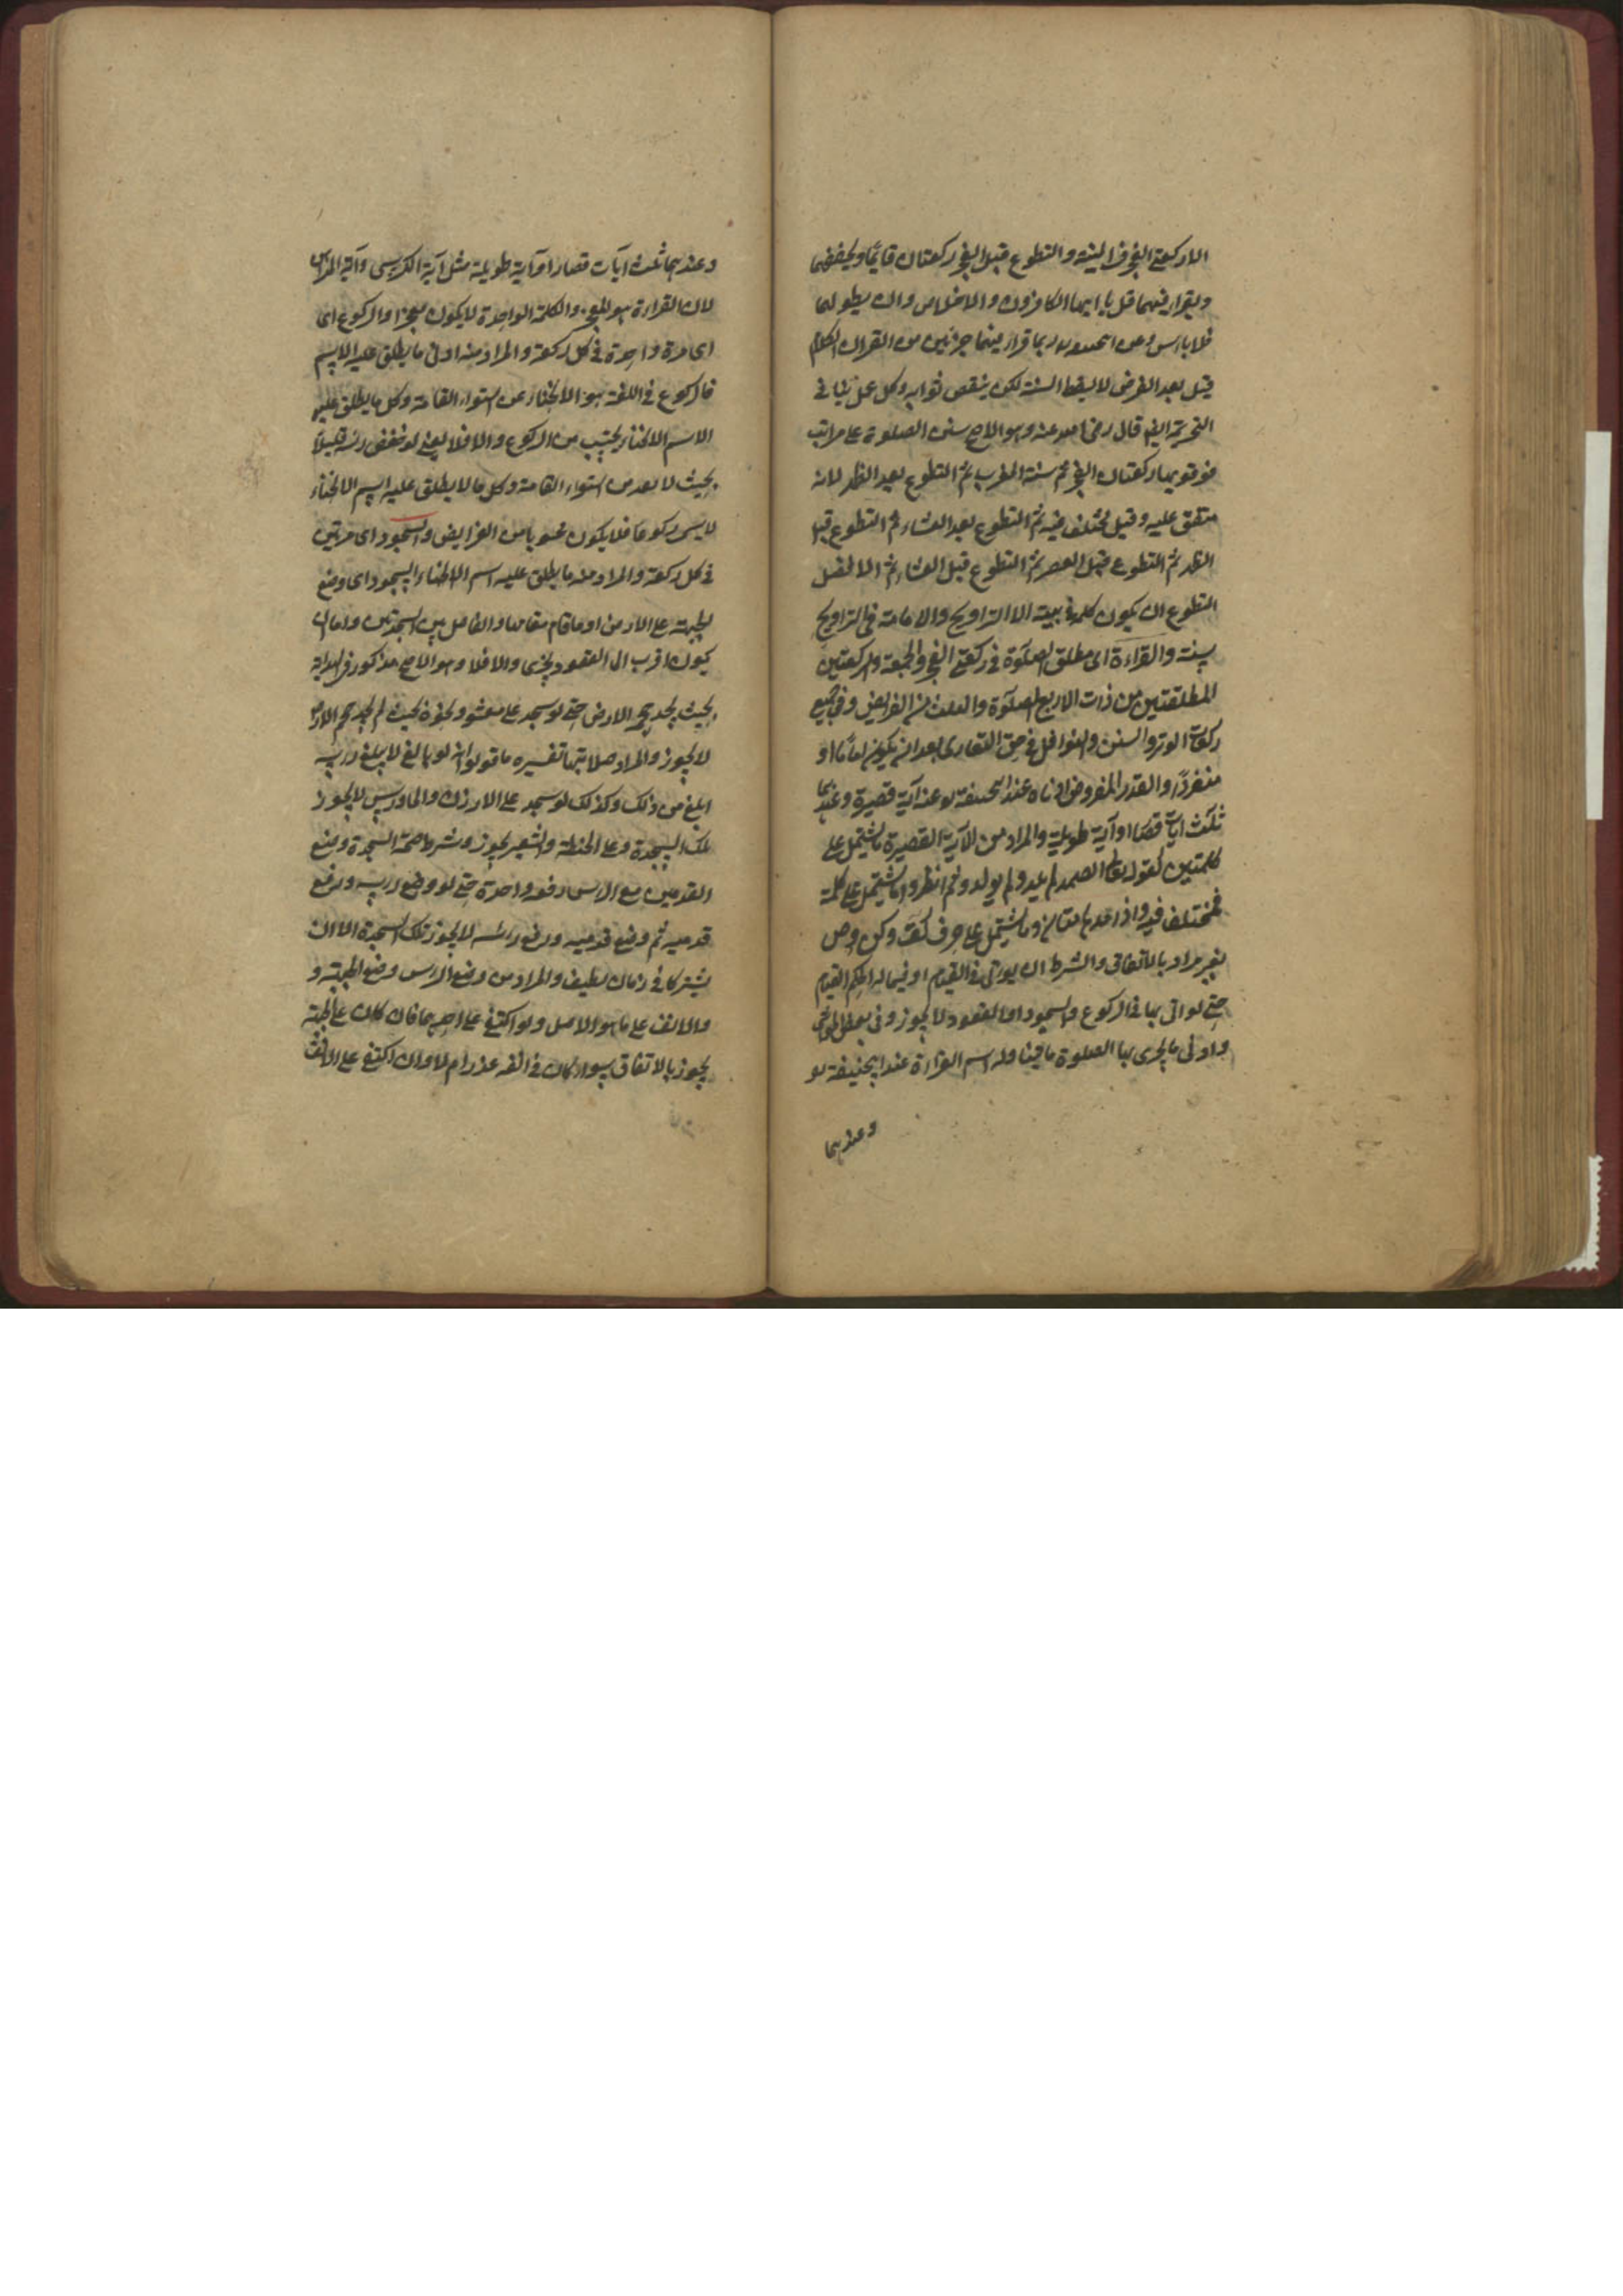 الا ركعتي الفجر فزالينه والتطوع قبل الفجر ركعتان قايما ويخففهما
ويقراء فيهما قل يا ايها الكافرون والاخلاص وان يطولهما
فلا باس وعن ربما قراء فيهما جزئين من القران الكلام
قيل بعد الفرض لا يسقط السنة لكن ينقص ثوابه وكل عمل ينافى
التحريمة ايضا قال رضى الله عنه وهو الاصح سنن الصلوة على مراتب
فوقويها ركعتان الفجر ثم سنة المغرب ثم التطوع بعد الظهر لانه
متفق عليه وقيل مختلف فيه ثم التطوع بعد العشاء ثم التطوع قبل
الظهر ثم التطوع قبل العصر ثم التطوع قبل العشاء ثم الافضل
التطوع ان يكون كله فى بيته الا التراويح والامامة فى التراويح
سنة والقراءة اى مطلق الصلوة فى ركعتى الفجر والجمعة والركعتين
المطلقتين من ذوات الاربع الصلوة والثلث من الفرايض وفى جميع
ركعات الوتر والسنن والنوافل فى حق القارى بعد ان يكون اماما او
منفردا والقدر المفروض ادناه عند ابيحنيفة آية قصيرة وعندهما
ثلث ايات قصار او آية طويلة والمراد من الآية القصيرة ما يشتمل على
كلمتين كقوله تعالى الصمد لم يلد ولم يولد وثم انظروا ما يشتمل على كلمة
فمختلف فيه وما يشتمل على حرف كق وكن وص
بغير مراد بالاتفاق والشرط ان يوتى فى القيام او فيما له احكم القيام
حتى لو اتى بها فى الركوع والسجود او القعود لا يجوز وفى بعض الحواشى
وادنى ما يجزى بها الصلوة ما تيناوله اسم القراءة عند ابيحنيفة لو
وعندهما
وعندهما ثلث آيات قصار او آية طويلة مثل آية الكرسى وآية
لان القراءة هو المعجز والكلمة الواحدة لا يكون معجزا والركوع اى
اى مرة واحدة فى كل ركعة والمراد منه ادنى ما يطلق عليه الاسم
فالركوع فى اللغة هو الانحناء عن استواء القامة وكل ما يطلق عليه
الاسم الانحناء يحتسب من الركوع والا فلا يعنى لو خفض راسه قليلا
بحيث لا يعد من استواء القامة وكل ما لا يطلق عليه اسم الانحناء
لا يسمى ركوعا فلا يكون محسوبا من الفرايض والسجود اى مرتين
فى كل ركعة والمراد منه ما يطلق عليه اسم السجود اى وضع
الجبهة على الارض او ما قام مقامها والفاصل بين السجدتين
يكون اقرب الى القعود يجزى والا فلا وهو الاصح مذكور فى الهداية
بحيث يجد حجم الارض حتى لو سجد على محشو ونحوه بحيث لم يجد حجم الارض
لا يجوز والمراد صلابتها تفسيره ما قولوا انه لو بالغ لا يبلغ راسه
ابلغ من ذلك وكذلك لو سجد على الارزن والجاورس لا يجوز
تلك السجدة وعلى الحنطة والشعير يجوز وشرط صحة السجدة وضع
القدمين مع الراس دفعه واحدة حتى لو وضع راسه ورفع
قدميه ثم وضع قدميه ورفع رأسه لا يجوز تلك السجدة الا ان
يشتركا فى زمان لطيف والمراد من وضع الراس وضع الجبهة و
والانف على ما هو الاصل ولو اكتفى على احديهما فان كان على الجبهة
يجوز بالاتفاق سواء كان فى انفه عذر ام لا وان اكتفى على الانف